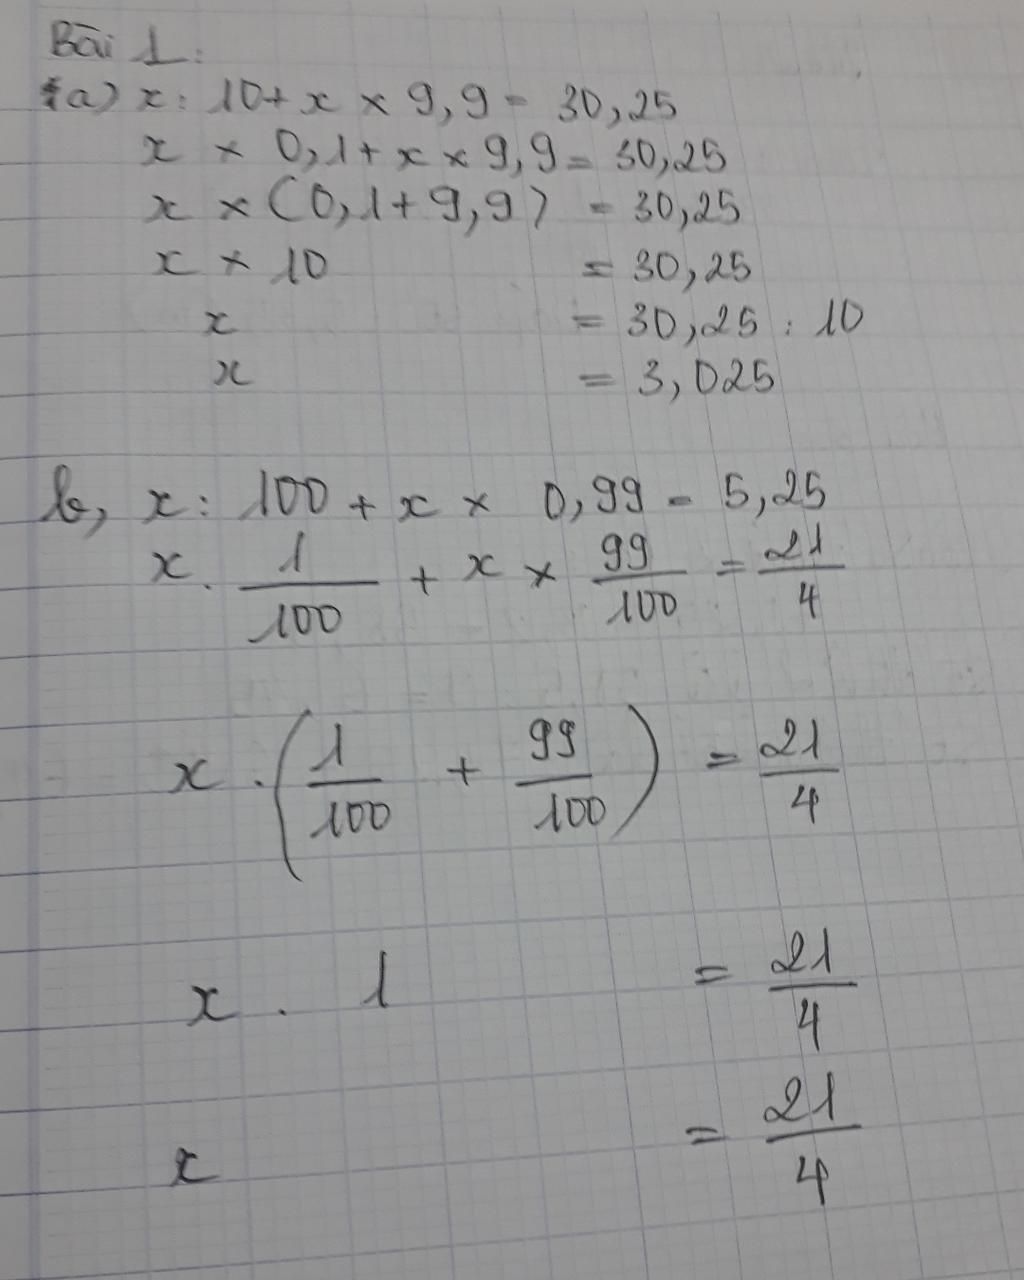 Bài 1:
a) x : 10 + x × 9,9 = 30,25
x × 0,1 + x × 9,9 = 30,25
x × (0,1 + 9,9) = 30,25
x × 10 = 30,25
x = 30,25 : 10
x = 3,025
b, x : 100 + x × 0,99 = 5,25
x . 1/100 + x × 99/100 = 21/4
x . (1/100 + 99/100) = 21/4
x . 1 = 21/4
x = 21/4